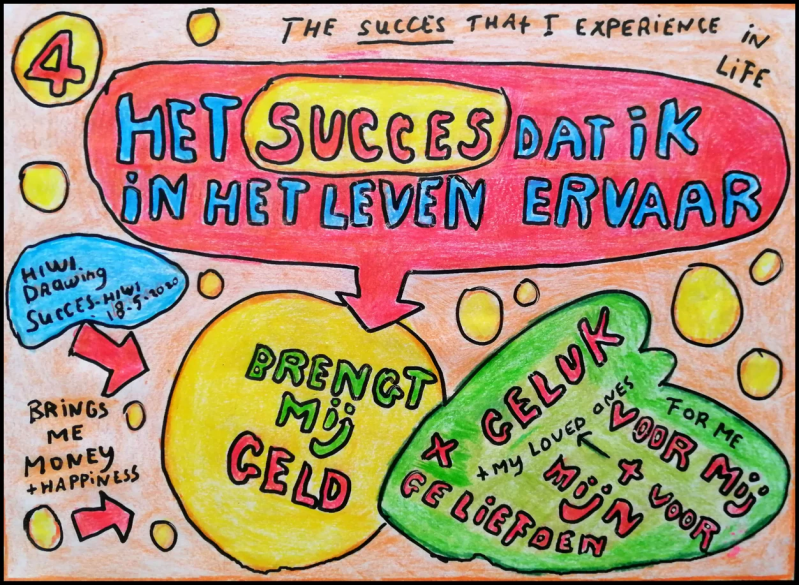 4
THE SUCCES THAT I EXPERIENCE IN
LIFE
HET SUCCES DAT IK
IN HET LEVEN ERVAAR
HIWI
DRAWING
SUCCES-HIWI
18-5-2020
BRENGT
MIJ
GELD
BRINGS
ME
MONEY
+ HAPPINESS
X GELUK
VOOR MIJ
FOR ME
+ MY LOVED ONES
+ VOOR
MIJN
GELIEFDEN